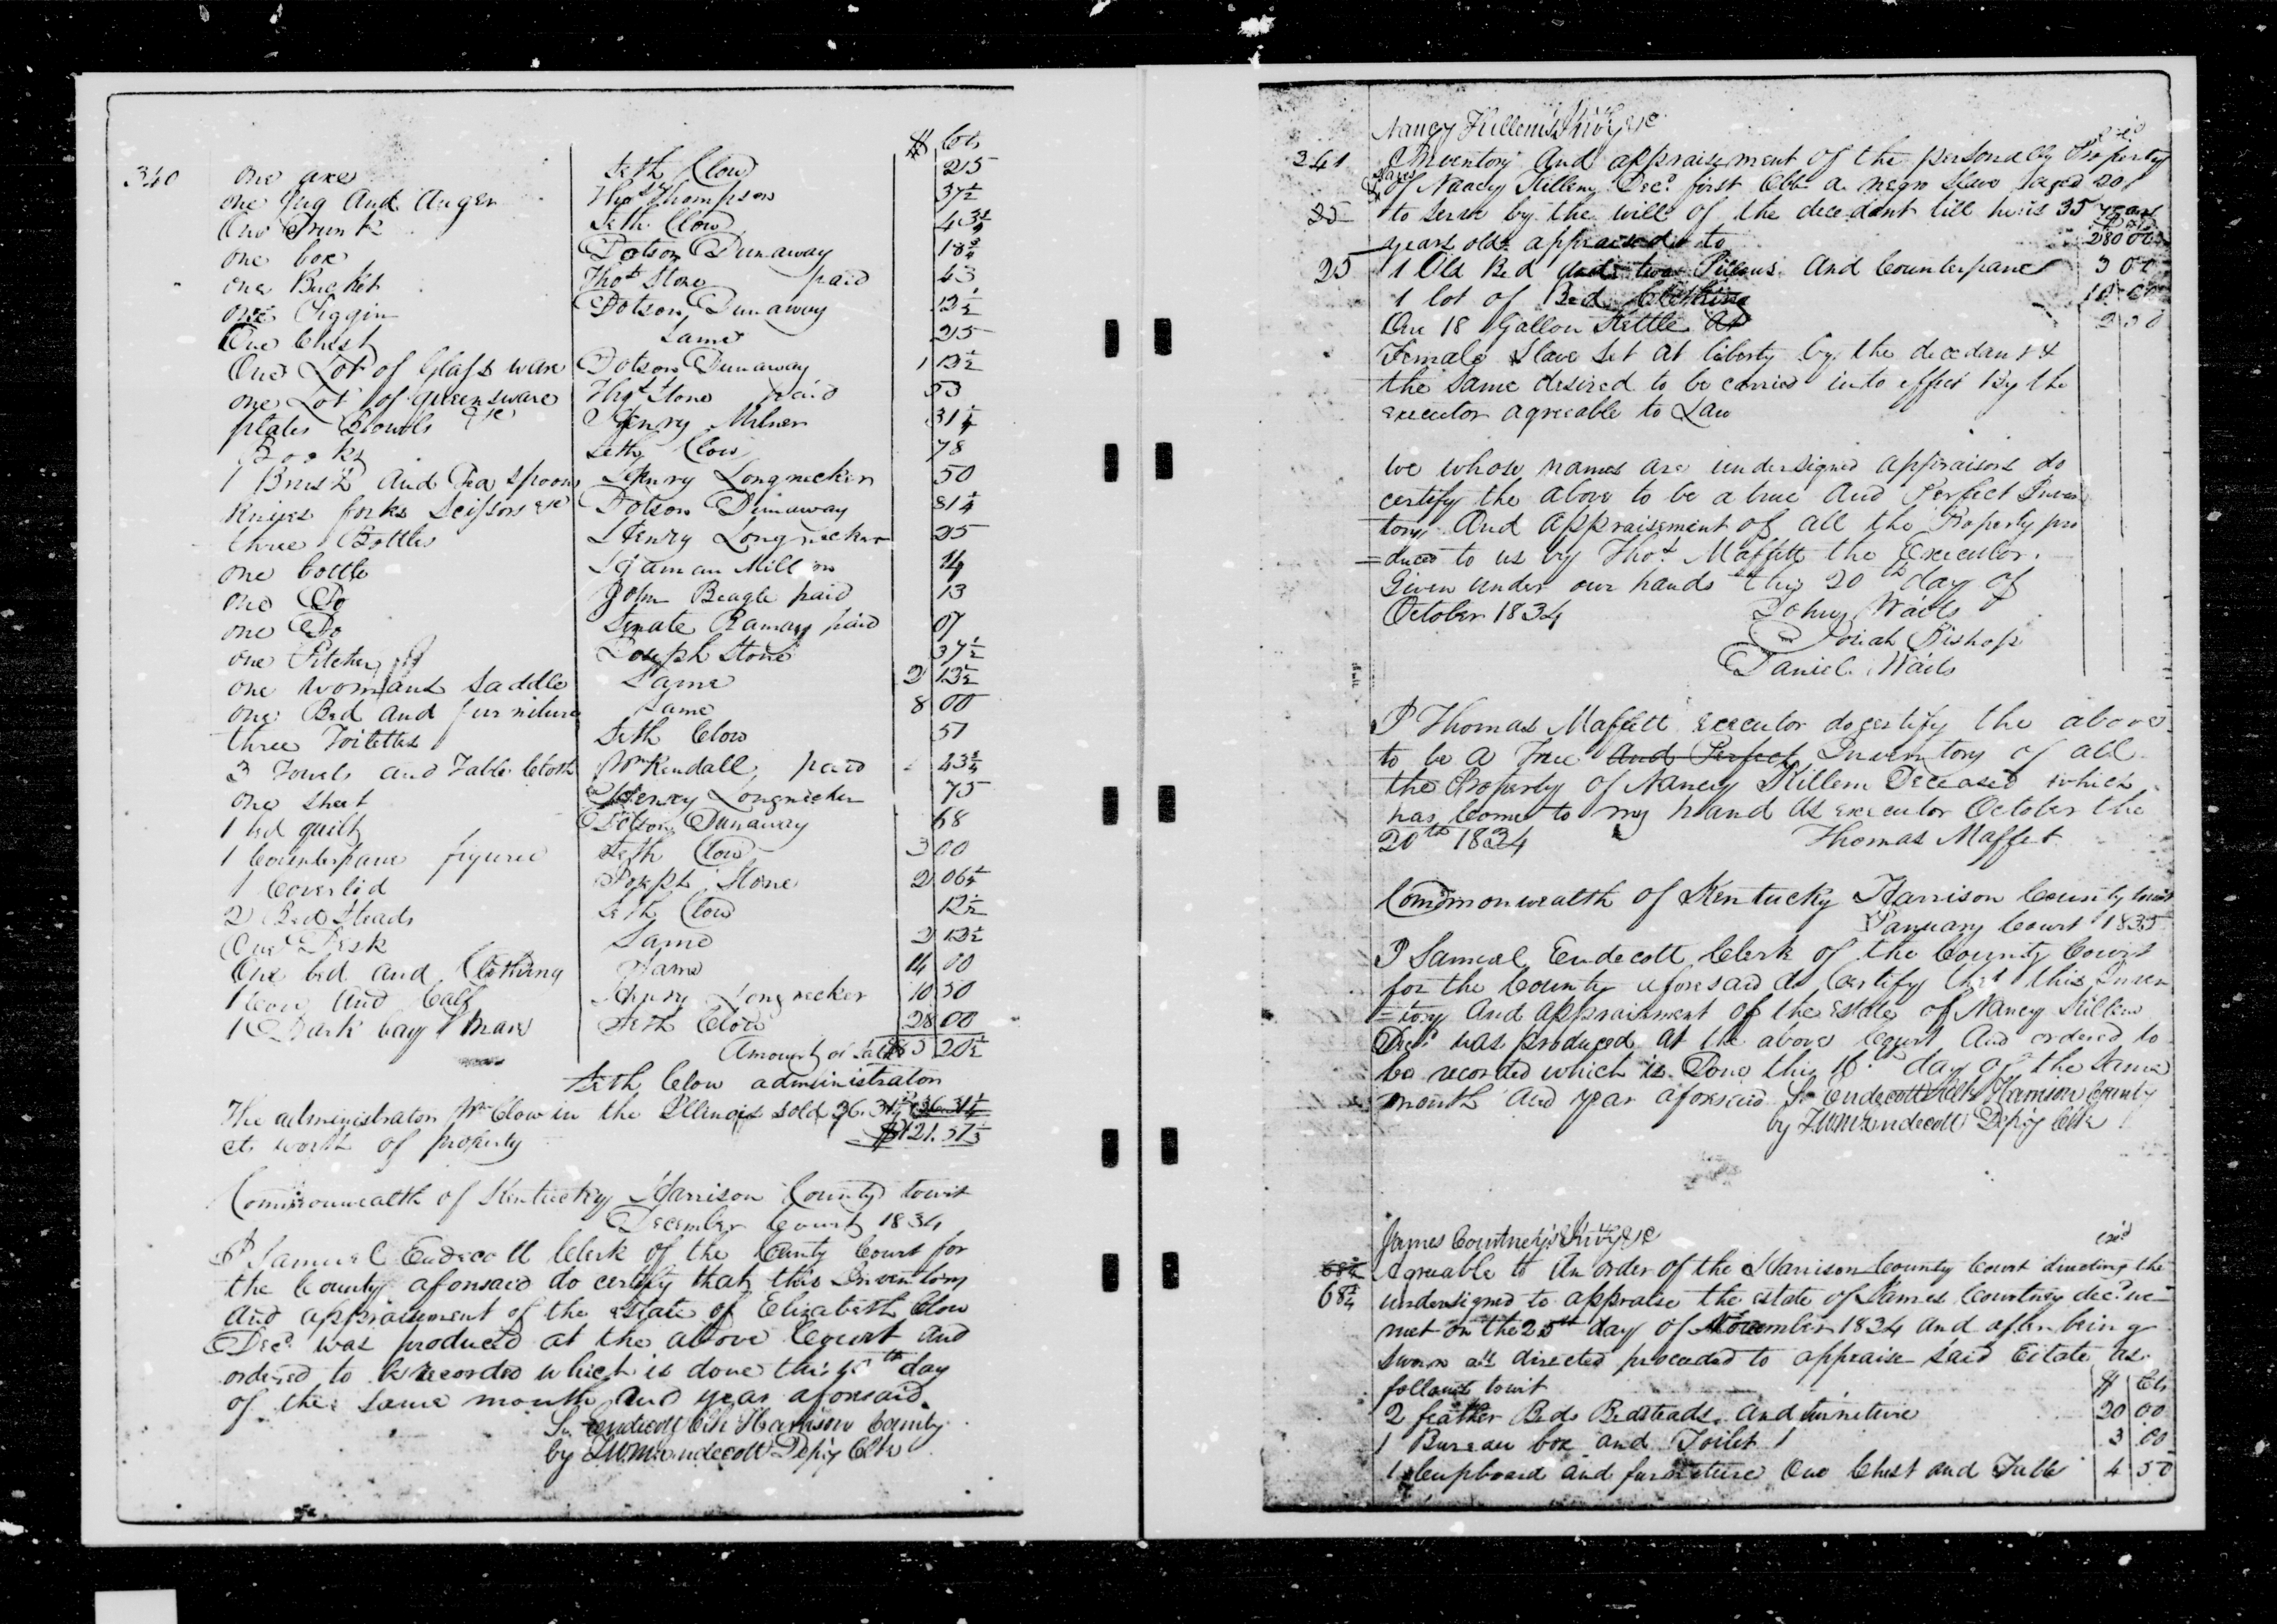 $ Cts
340 one axe Seth Clow 25
one Jug And Auger Thos Thompson 37½
One Trunk Seth Clow 43¾
one box Dotson Dunaway 18¾
one Bucket Thos Stone paid 43
one Piggin Dotson Dunaway 12½
One Chest Same 25
One Lot of Glass ware Dotson Dunaway 1 12½
one Lot of Queensware Thos Stone paid 53
plates Bowls &c Henry Milner 31¼
Books Seth Clow 78
1 Brush And Tea spoons Henry Longnecker 50
Knives forks Scissors &c Dotson Dunaway 81¼
three Bottles Henry Longnecker 25
one bottle 14
one Do John Beagle paid 13
one Do Ramay paid 07
one Pitcher Joseph Stone 37½
one womans saddle Same 2 12½
one Bed and furniture Same 8 00
three Toilettes Seth Clow 51
3 Towels and Table Cloth Wm Kendall, paid 43¾
one sheet Henry Longnecker 75
1 bed quilt Dotson Dunaway 68
1 Counterpane figured Seth Clow 3 00
1 Coverlid Joseph Stone 2 06¼
2 Bed Steads Seth Clow 12½
One Desk Same 2 12½
One bed and Clothing Same 14 00
1 Cow And Calf Henry Longnecker 10 50
1 Dark bay Mare Seth Clow 28 00
Amount of sale 20½
Seth Clow administrator
The administrator Wm Clow in the Illinois sold 36.31¼ 36.31¼
cts worth of property $121.51½
Commonwealth of Kentucky Harrison County towit
December Court 1834
I Samuel Endecott Clerk of the County Court for
the County aforesaid do certify that this Inventory
And appraisement of the estate of Elizabeth Clow
Decd was produced at the above Court and
ordered to be recorded which is done this day
of the same month And year aforesaid.
S. Endecott Clk Harrison County
by Endecott Depy Clk
Nancy Killem's Invy &c
341 Inventory And appraisement of the personally Property
of Nancy Killem Decd first a negro Slave aged 20
25 to serve by the will of the decedant till he is 35 years
years old appraised to 280 00
25 1 Old Bed and two Pillows And Counterpane 3 00
1 lot of Bed Clothing 10 00
One 18 Gallon Kettle At 2 50
Female Slave Set at liberty by the decedant &
the same desired to be carried into effect by the
executor agreeable to Law
We whose names are undersigned appraisors do
certify the above to be a true And Perfect Inven
tory And appraisement of all the Property pro
=duced to us by Thos Maffett the Executor.
Given under our hands this 20th day of
October 1834 John Waits
Josiah Bishop
Daniel Waits
I Thomas Maffett executor do certify the above
to be a True And Perfect Inventory of all
the Property of Nancy Killem Deceased which
has Come to my hand as executor October the
20th 1834 Thomas Maffet
Commonwealth of Kentucky Harrison County towit
January Court 1835
I Samuel Endecott Clerk of the County Court
for the County aforesaid do Certify that this Inven
=tory And appraisment of the estate of Nancy Killem
Decd was produced at the above Court And ordered to
be recorded which is Done this day of the same
month And year aforesaid S. Endecott Clk Harrison County
by Endecott Depy Clk
James Courtney's Invy &c
68¾ Agreeable to An order of the Harrison County Court directing the
68¾ undersigned to appraise the estate of James Courtney decd we
met on the 25th day of November 1834 and after being
sworn as directed proceeded to appraise said Estate as
follows towit $ Cts
2 feather Beds Bedsteads And furniture 20 00
1 Bureau box and Toilet 3 00
1 Cupboard and furniture One Chest and Table 4 50